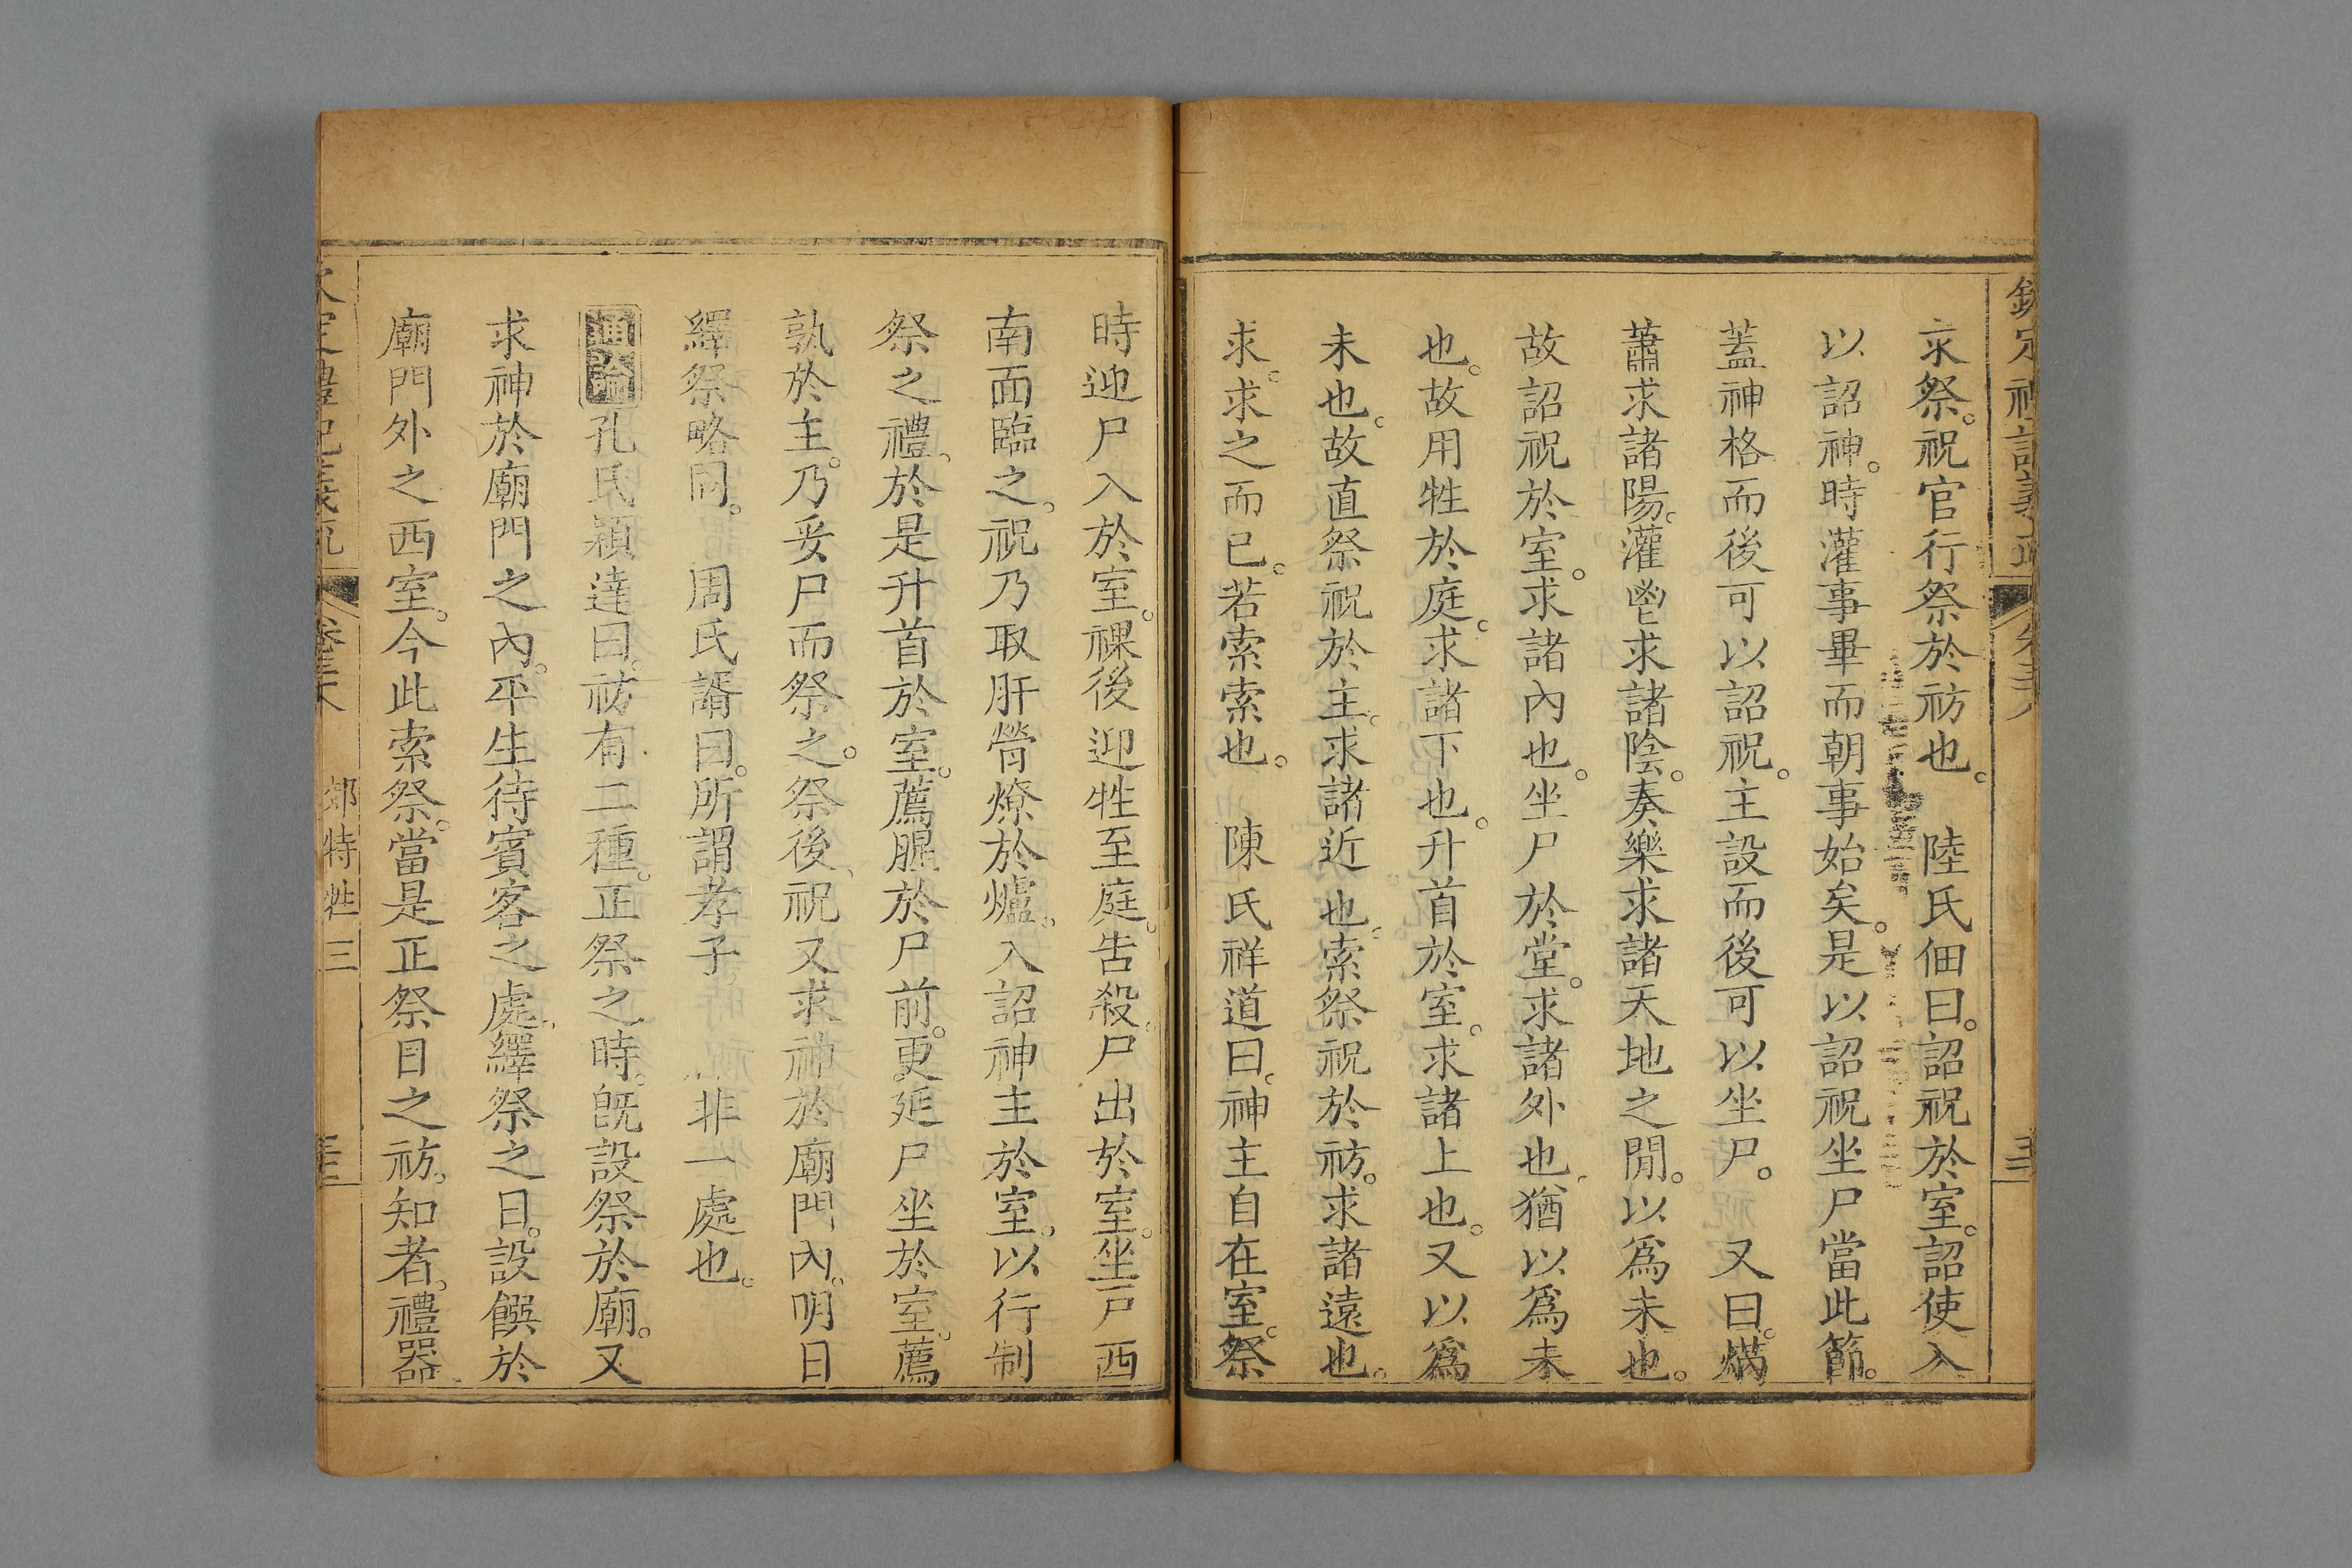 欽定禮記義疏 卷三十八
求祭。祝官行祭於祊也。 陸氏佃曰。詔祝於室。詔使入
以詔神。時灌事畢而朝事始矣。是以詔祝坐尸當此節。
蓋神格而後可以詔祝。主設而後可以坐尸。 又曰。焫
蕭求諸陽。灌鬯求諸陰。奏樂求諸天地之閒。以爲未也。
故詔祝於室。求諸內也。坐尸於堂。求諸外也。猶以爲未
也。故用牲於庭。求諸下也。升首於室。求諸上也。又以爲
未也。故直祭祝於主。求諸近也。索祭祝於祊。求諸遠也。
求。求之而已。若索索也。 陳氏祥道曰。神主自在室。祭
時迎尸入於室。祼後迎牲至庭。告殺。尸出於室。坐戶西
南面臨之。祝乃取肝膋燎於爐。入詔神主於室。以行制
祭之禮。於是升首於室。薦腥於尸前。更延尸坐於室。薦
孰於主。乃妥尸而祭之。祭後、祝又求神於廟門內。明日
繹祭略同。 周氏諝曰。所謂孝子 非一處也。
通論孔氏穎達曰。祊有二種。正祭之時。旣設祭於廟。又
求神於廟門之內。平生待賓客之處。繹祭之日。設饌於
廟門外之西室。今此索祭。當是正祭日之祊。知者。禮器
欽定禮記義疏 卷三十八 郊特牲三